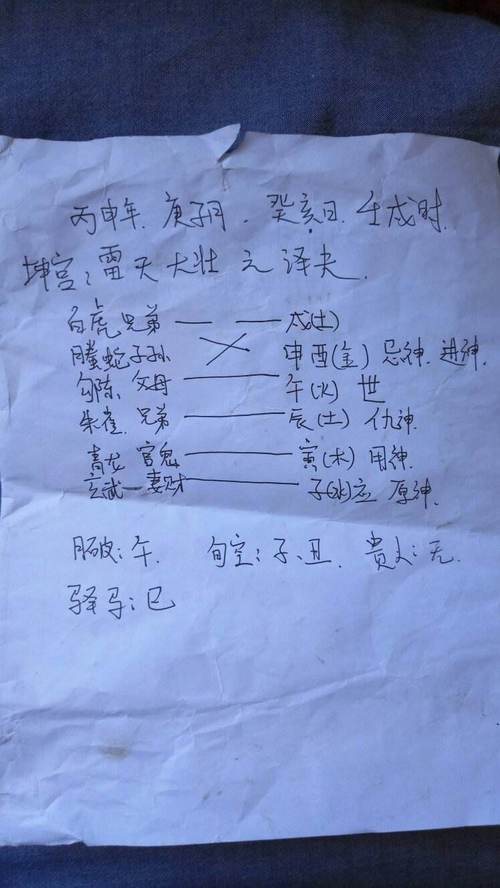 丙申年. 庚子月. 癸亥日. 壬戌时.
坤宫: 雷天大壮 之 泽夬.
白虎 兄弟 — — 戌(土)
螣蛇 子孙 × 申酉(金) 忌神. 进神.
勾陈. 父母 —— 午(火) 世
朱雀. 兄弟 —— 辰(土) 仇神.
青龙 官鬼 —— 寅(木) 用神.
玄武 妻财 —— 子(水)应 原神.
月破: 午. 旬空: 子、丑. 貴人: 无.
驿马: 巳